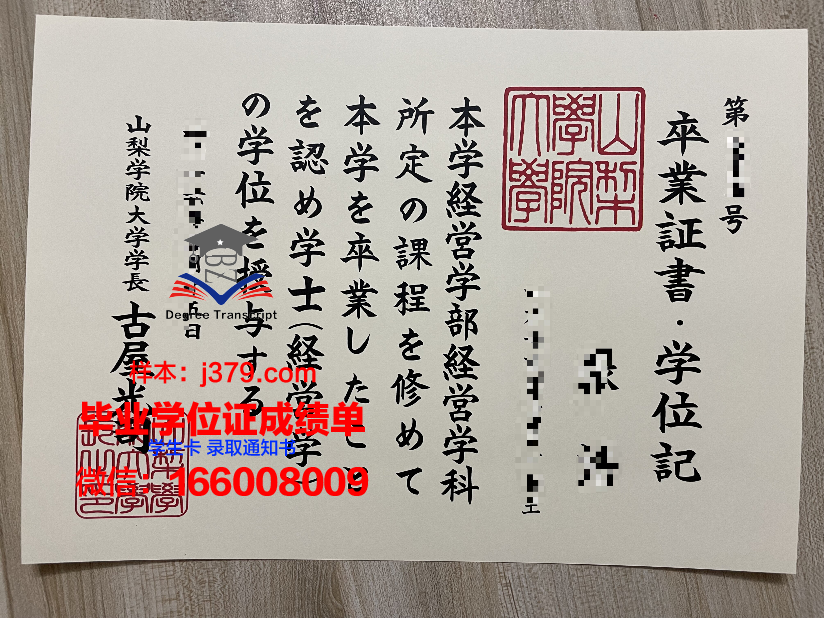 第
号
卒業証書・学位記
山梨
學院
大學
本学経営学部経営学科
所定の課程を修めて
本学を卒業したこと
を認め学士(経営学)
の学位を授与する
日
山梨学院大学学長
古屋光司
BZ
Degree Transcript
样本：j379.com
毕业学位证成绩单
学生卡 录取通知书
微信：166008009